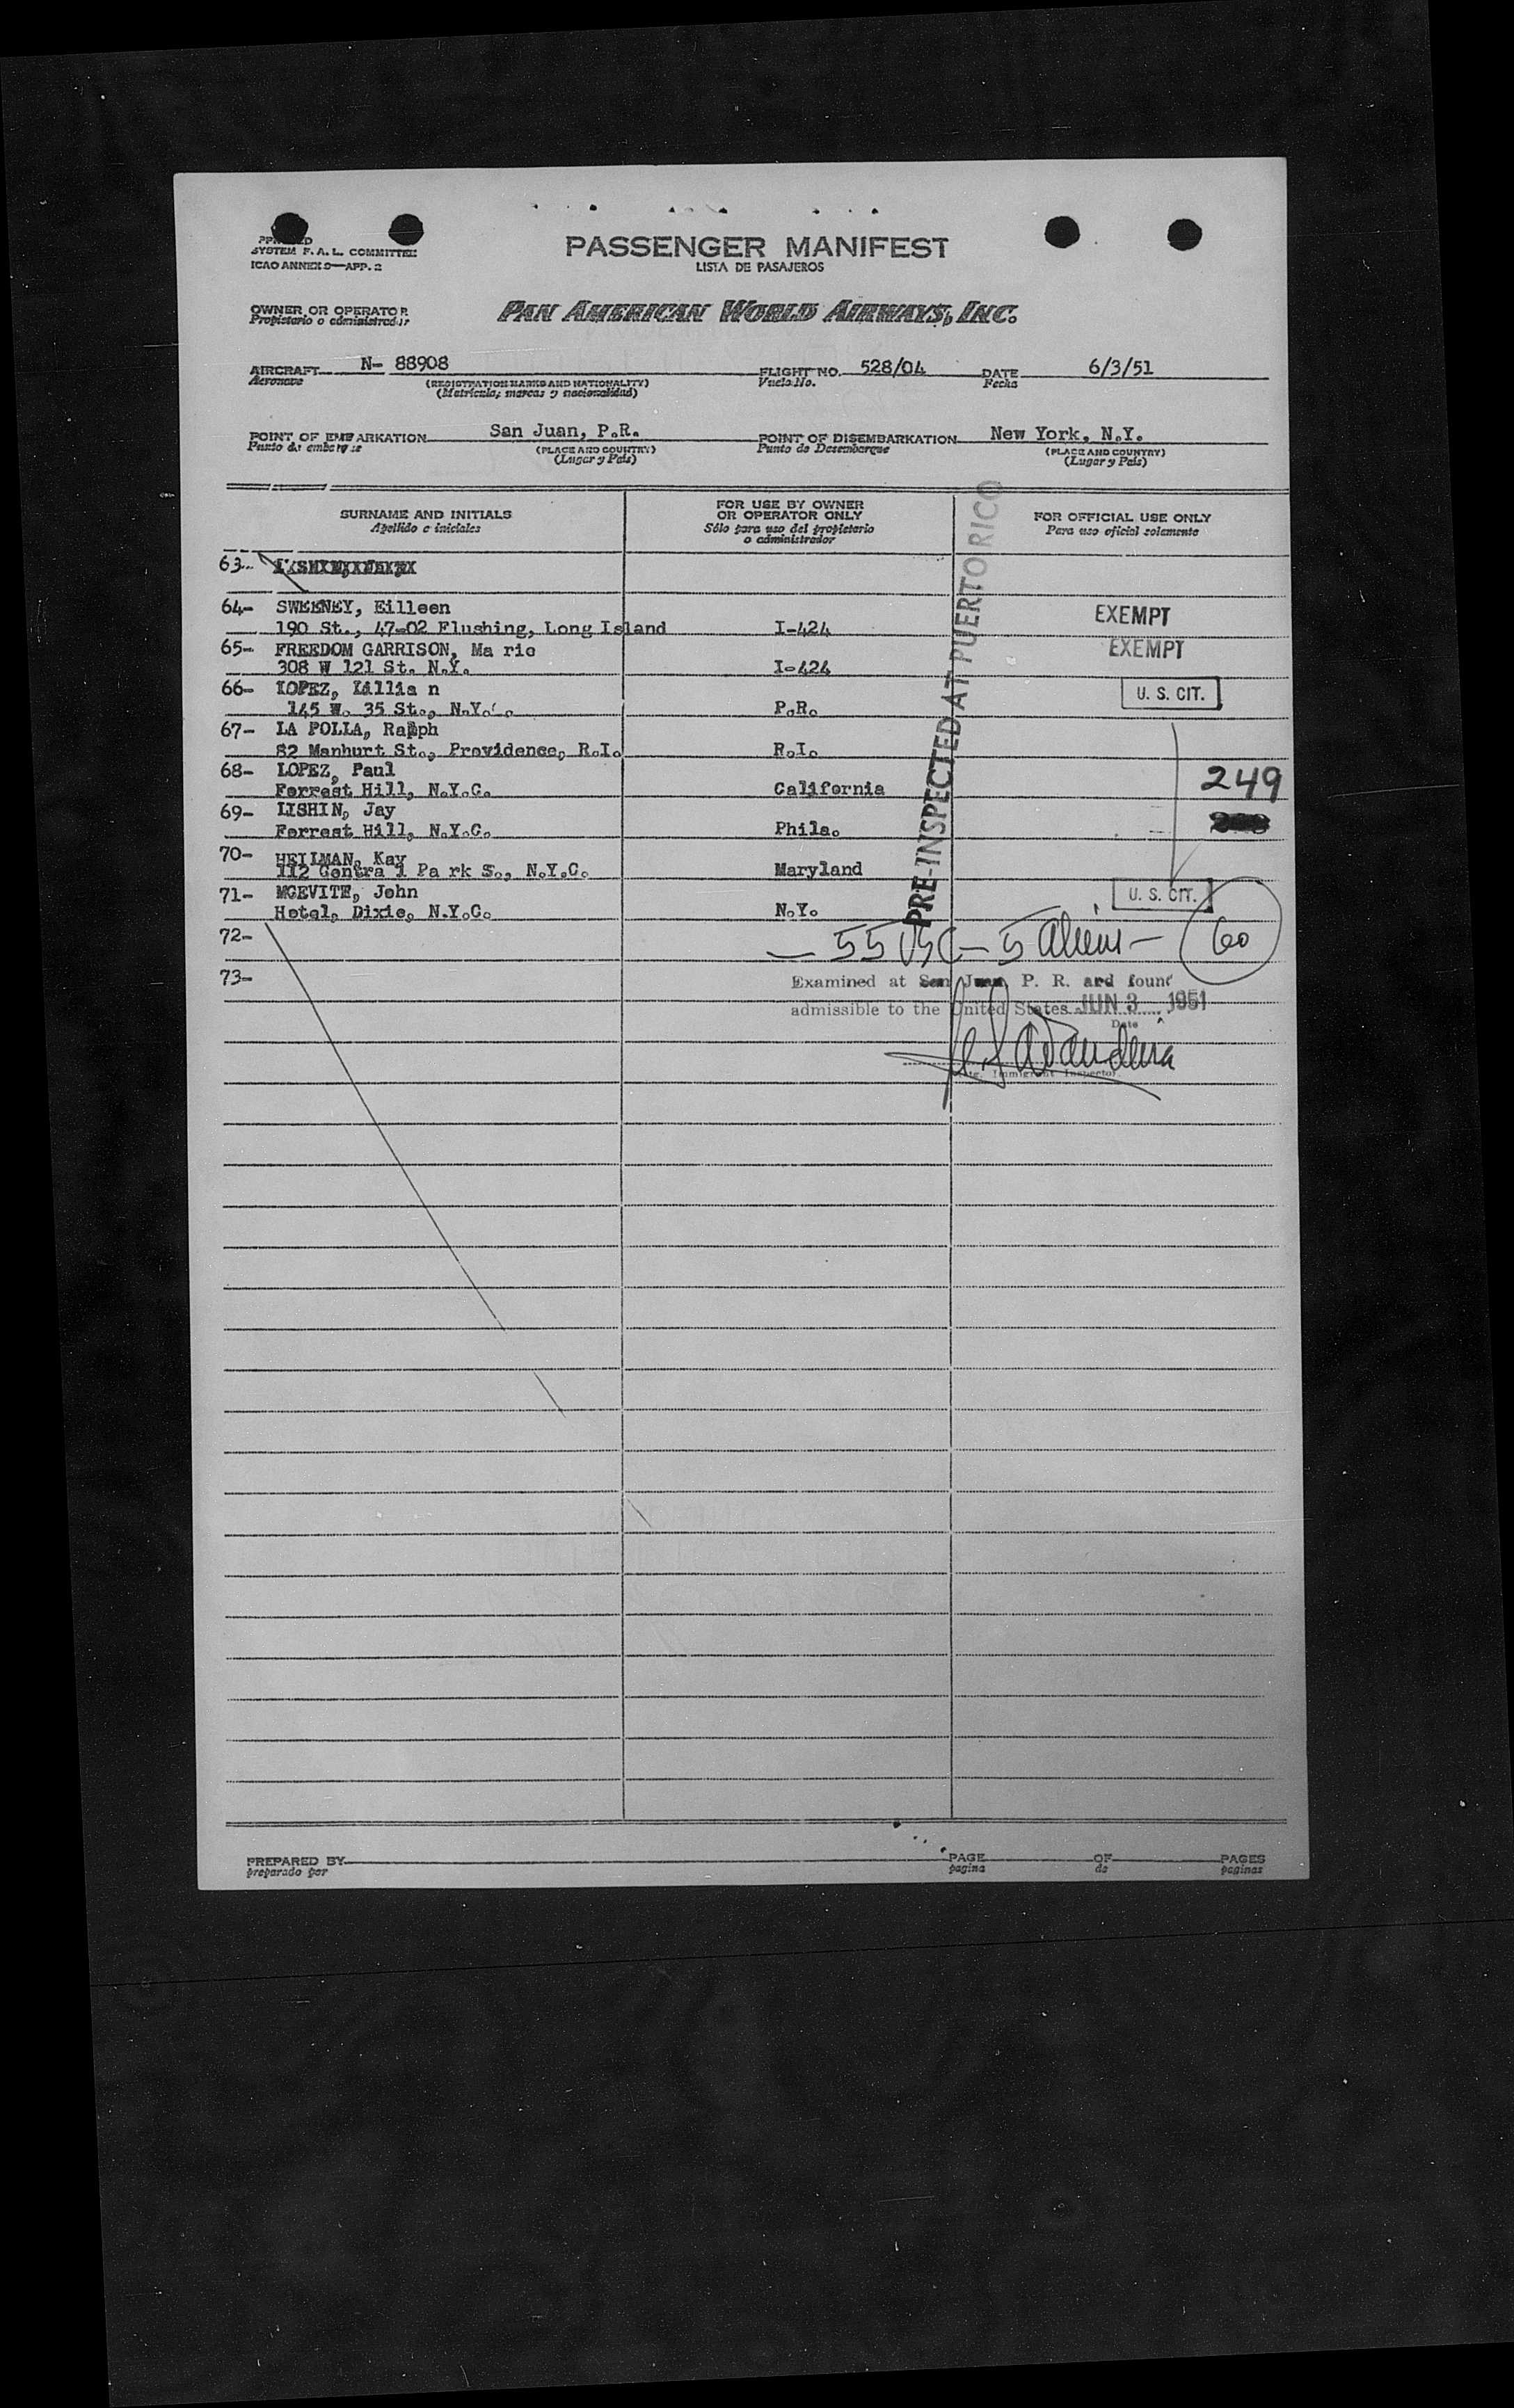 SYSTEM F. A. L. COMMITTEE
ICAO ANNEX 9—APP. 2
PASSENGER MANIFEST
LISTA DE PASAJEROS
OWNER OR OPERATOR
Propietario o administrador
PAN AMERICAN WORLD AIRWAYS, INC.
AIRCRAFT N- 88908 FLIGHT NO. 528/04 DATE 6/3/51
Aeronave (REGISTRATION MARKS AND NATIONALITY) Vuelo No. Fecha
(Matricula, marcas y nacionalidad)
POINT OF EMBARKATION San Juan, P.R. POINT OF DISEMBARKATION New York, N.Y.
Punto de embarque (PLACE AND COUNTRY) Punto de Desembarque (PLACE AND COUNTRY)
(Lugar y Pais) (Lugar y Pais)
SURNAME AND INITIALS
Apellido e iniciales
FOR USE BY OWNER
OR OPERATOR ONLY
Sólo para uso del propietario
o administrador
FOR OFFICIAL USE ONLY
Para uso oficial solamente
PRE-INSPECTED AT PUERTO RICO
63-
64- SWEENEY, Eilleen EXEMPT
190 St., 47-02 Flushing, Long Island I-424
65- FREEDOM GARRISON, Ma rie EXEMPT
308 W 121 St. N.Y. I-424
66- LOPEZ, Lillia n U. S. CIT.
145 W. 35 St., N.Y.C. P.R.
67- LA POLLA, Ralph
82 Manhurt St., Providence, R.I. R.I.
68- LOPEZ, Paul 249
Forrest Hill, N.Y.C. California
69- LISHIN, Jay
Forrest Hill, N.Y.C. Phila.
70- HEILMAN, Kay
112 Centra l Pa rk S., N.Y.C. Maryland
71- MCEVITE, John U. S. CIT.
Hotel, Dixie, N.Y.C. N.Y.
72- — 55 USC — 5 Aliens — 60
73- Examined at San Juan, P. R. and found
admissible to the United States JUN 3 1951
Date
Immigrant Inspector
PREPARED BY PAGE OF PAGES
preparado por pagina de paginas